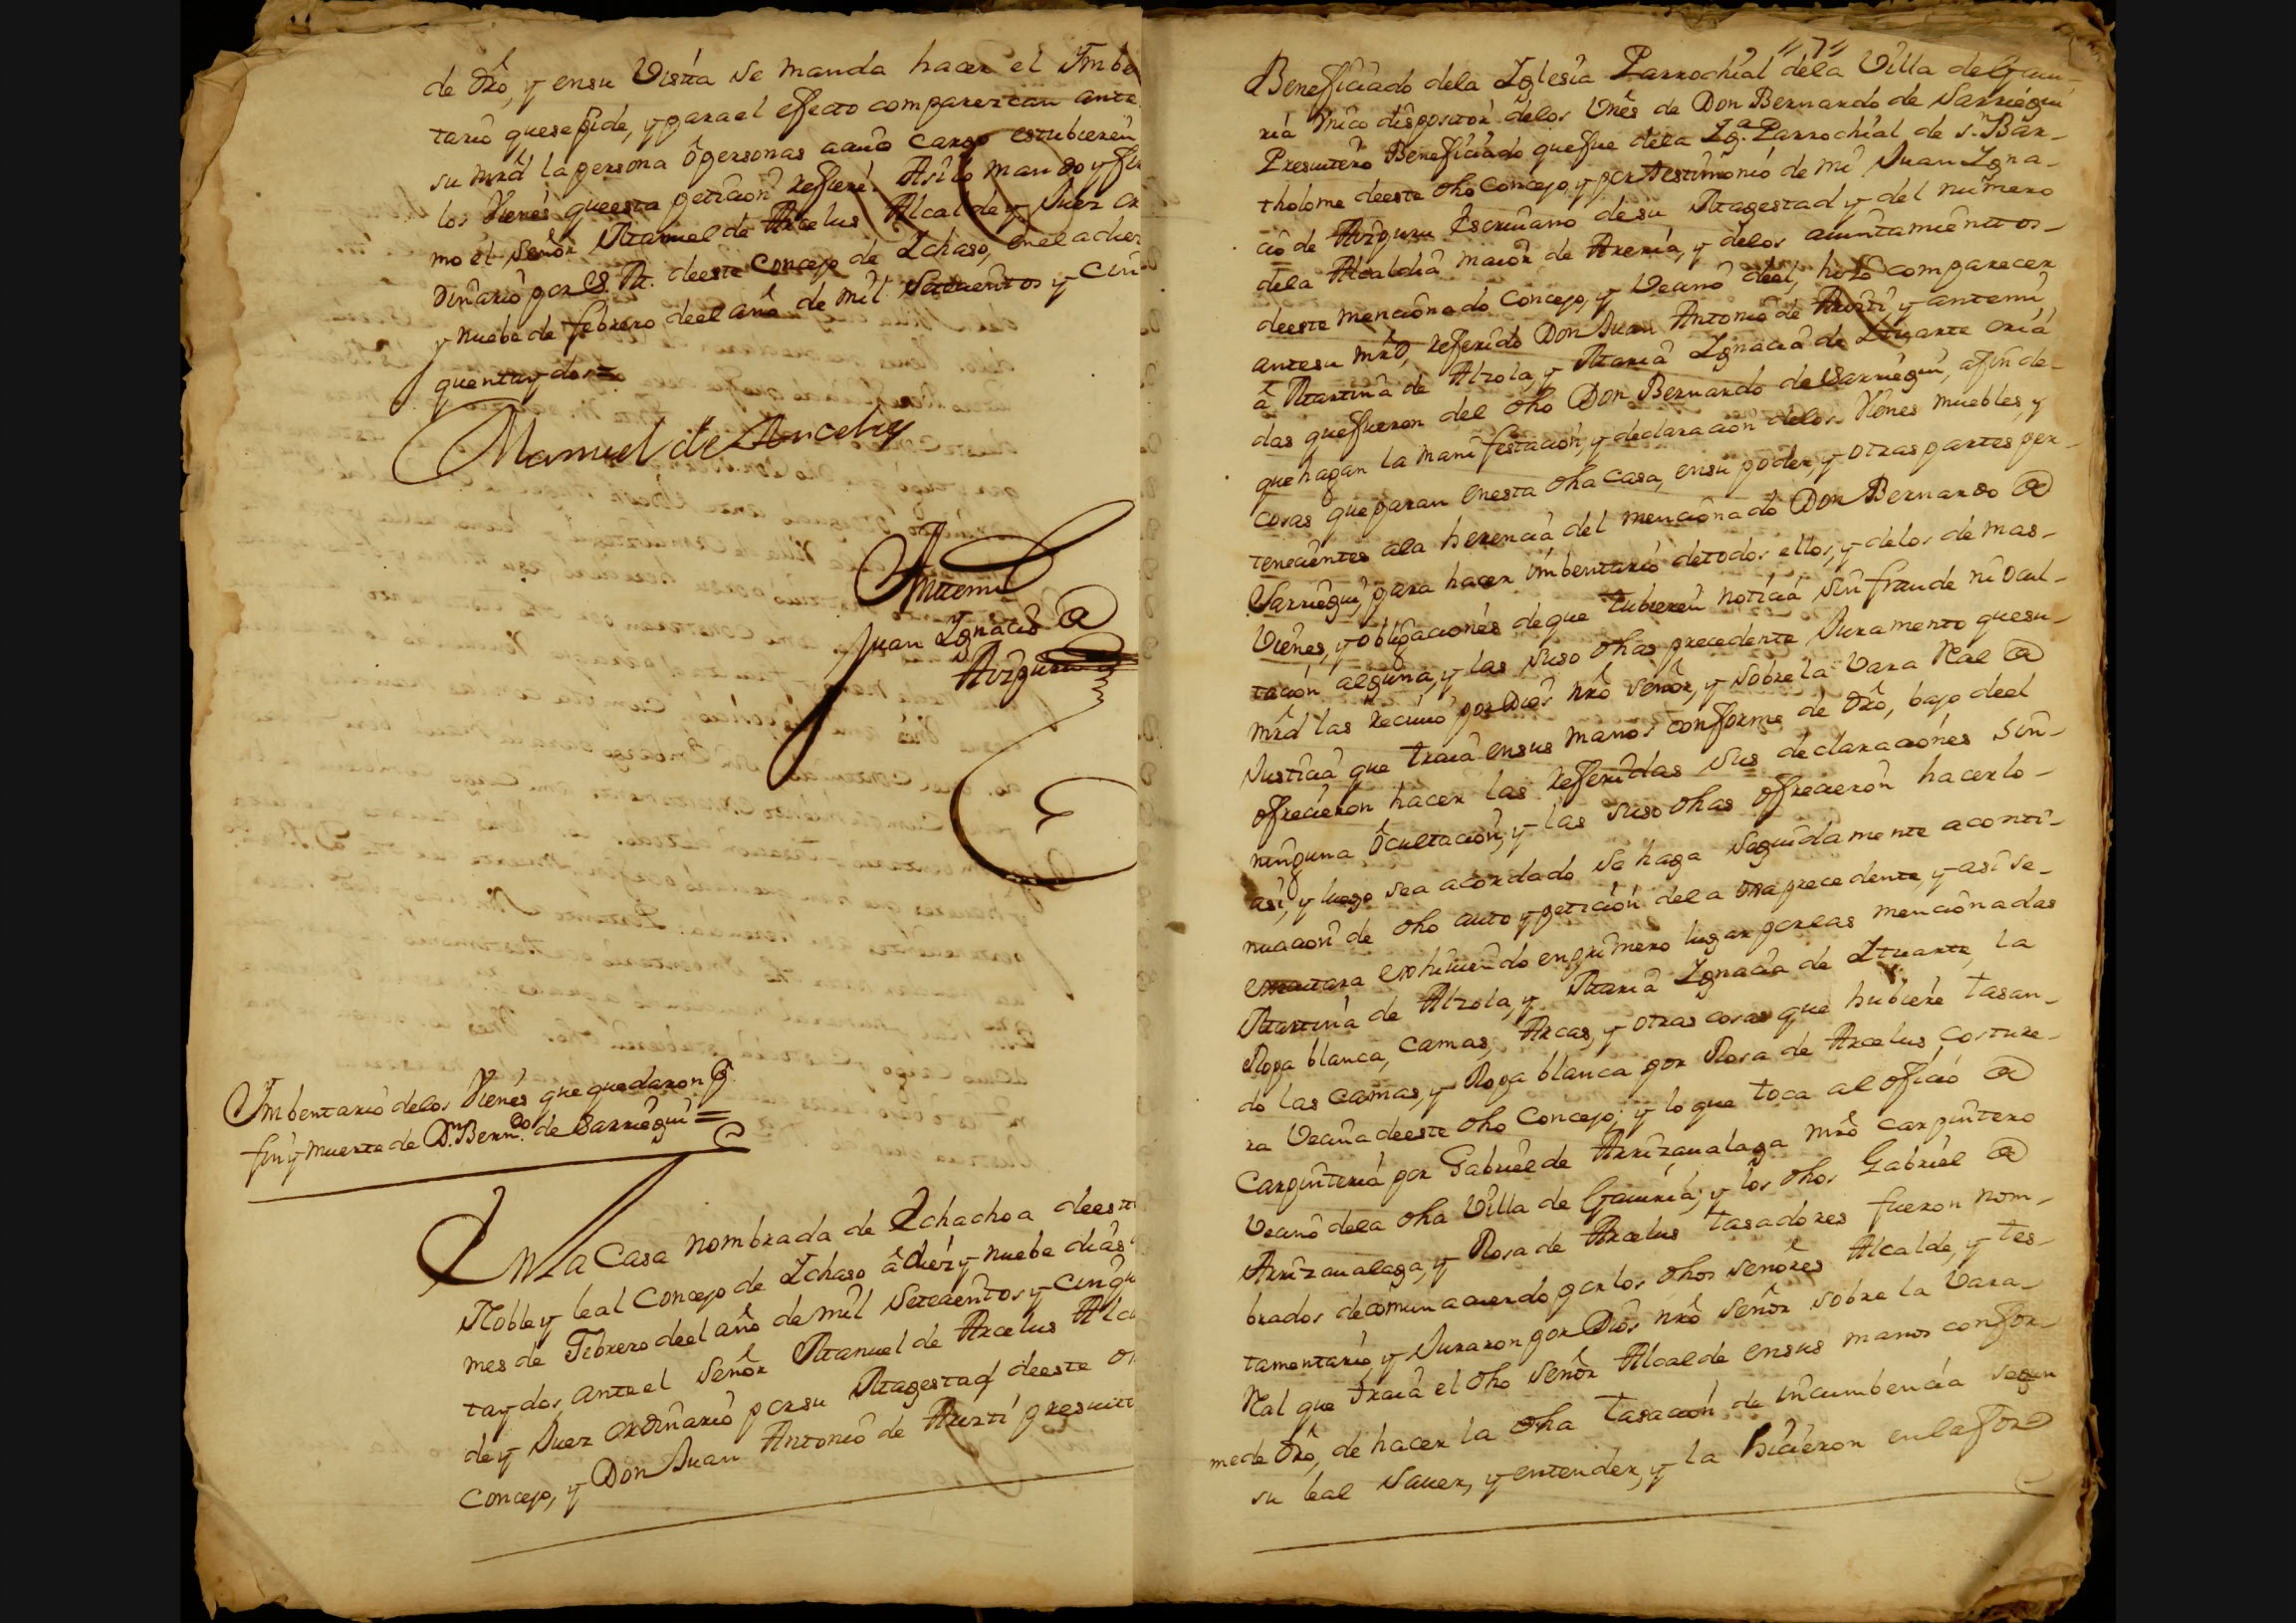 de dro, y en su Vista se manda hacer el Imbe
tario que se pide, y para el effecto comparezcan ante
su mrd la persona ô personas a cuio cargo estubieren
los Vienes que esta peticion refiere: Asi lo mando y fir
mo el Señor Manuel de Arcelus Alcalde y Juez or
dinario por S. M. de este Concejo de Ichaso, en el a diez
y nuebe de febrero de el año de mil Setecientos y cin
quenta y dos=
Manuel de Arcelus
Antemi
Juan Ygnacio @
Aizguru
Imbentario de los Vienes que quedaron por
fin y muerte de Dn. Berndo. de Sarriegui=
En la Casa nombrada de Echachoa de este
Noble y leal Concejo de Ichaso â diez y nuebe dias
mes de Febrero de el año de mil Setecientos y cinqu
ta y dos, ante el Señor Manuel de Arcelus Alca
de y Juez ordinario por su Magestad de este
Concejo, y Don Juan Antonio de Aierti presuite
"7"
Beneficiado de la Iglesia Parrochial de la Villa de Gaui-
ria Unico dispositor de los Vnes de Don Bernardo de Sarriegui
Presuitero Beneficiado que fue de la Iga. Parrochial de Sn. Bar-
tholome de este dho Concejo, y por testimonio de mi Juan Igna-
cio de Aizguru Escriuano de su Magestad y del numero
de la Alcaldia maior de Areria, y de los aiuntamientos-
de este mencionado Concejo, y Vecino de el, hizo comparecer
ante su mrd, referido Don Juan Antonio de Aierti y antemi
â Martina de Alzola, y Maria Ignacia de Ituarte cria
das que fueron del dho Don Bernardo de Sarriegui, a fin de-
que hagan la manifestacion, y declaracion de los Vienes muebles, y
cosas que paran en esta dha casa, en su poder, y otras partes per-
tenecientes a la herencia del mencionado Don Bernardo @
Sarriegui para hacer imbentario de todos ellos, y de los de mas-
Vienes, y obligaciones de que tubieren noticia sin fraude ni ocul-
tacion alguna, y las suso dhas precedente Juramento que su-
mrd las reciuio por Dios nro Señor, y sobre la Vara Real @
Justicia que traia en sus manos conforme de dro, bajo de el
ofrecieron hacer las referidas sus declaraciones sin-
ninguna ôcultacion, y las suso dhas ofrecieron hacerlo-
asi, y luego sea acordado se haga seguidamente a conti-
nuacion de dho auto y peticion de la otra precedente, y asi se-
executara exhiuiendo en primero lugar por las mencionadas
Martina de Alzola, y Maria Ignacia de Ituarte, la
Ropa blanca, camas, Arcas, y otras cosas que hubiere tasan-
do las camas, y Ropa blanca por Rosa de Arcelus costure-
ra Vecina de este dho Concejo; y lo que toca al oficio @
Carpinteria por Gabriel de Arrizaualaga mro carpintero
Vecino de la dha Villa de Gauiria; y los dhos Gabriel @
Arrizaualaga, y Rosa de Arcelus tasadores fueron nom-
brados de comun acuerdo por los dhos Señores Alcalde, y tes-
tamentario, y Juraron por Dios nro Señor sobre la Vara-
Real que traia el dho Señor Alcalde en sus manos confor-
me de dro, de hacer la dha tasacion de incumbencia segun
su leal Sauer, y entender, y la hicieron en la for